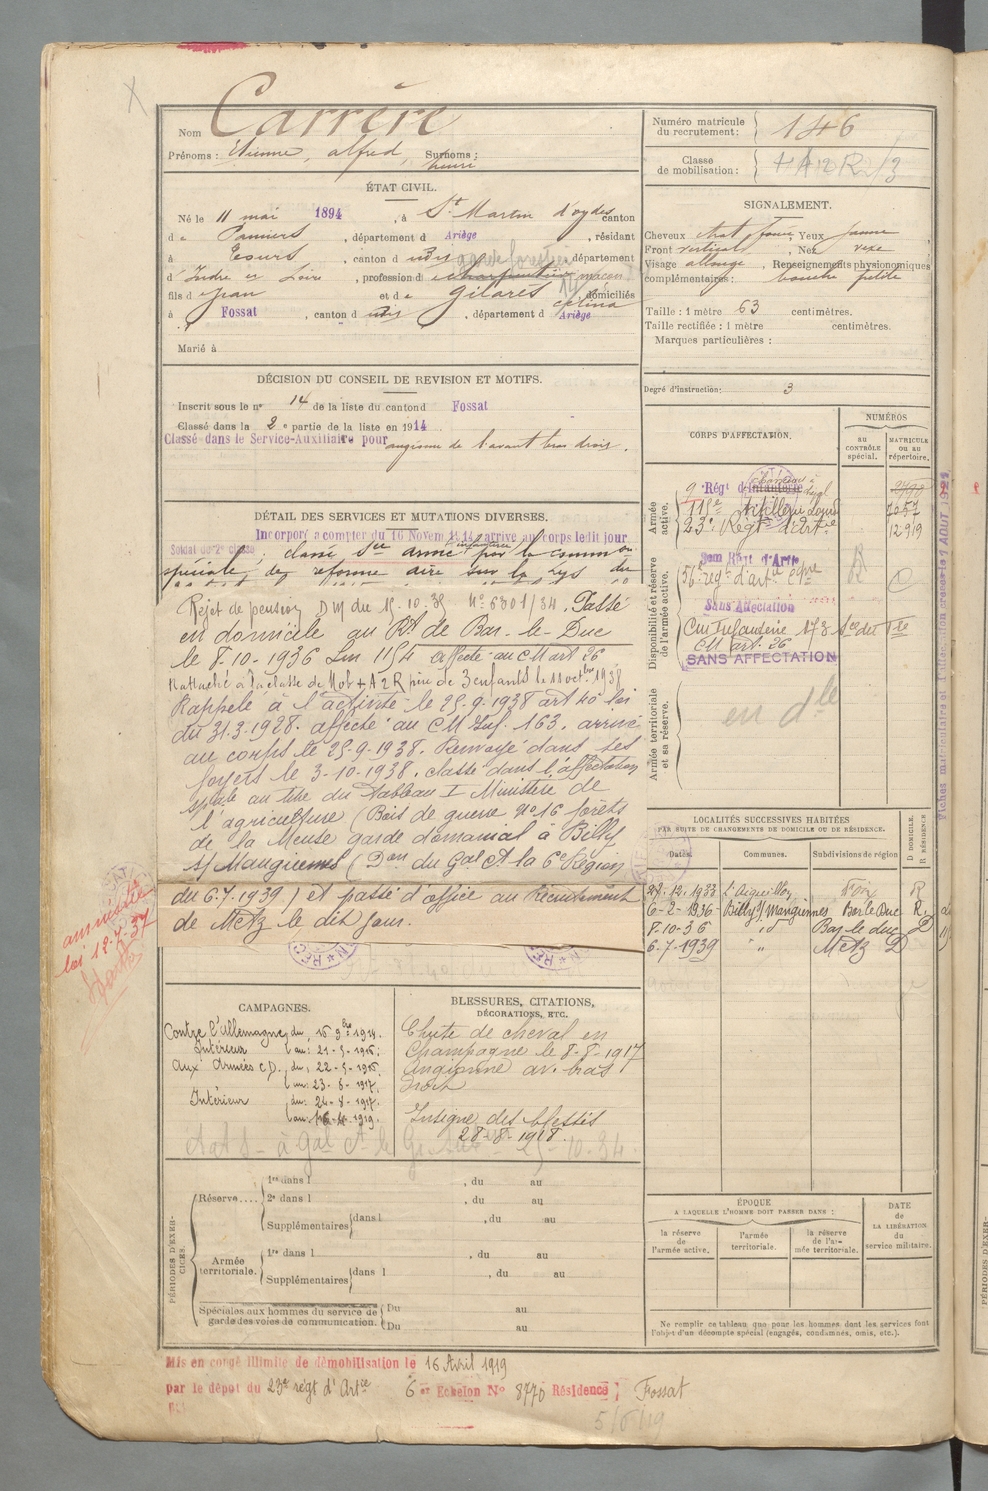 Nom Carrère
Prénoms : Etienne, alfred, Surnoms :
henri
ÉTAT CIVIL.
Né le 11 mai 1894, à St Martin d'oydes canton
de Pamiers, département d Ariège, résidant
à Tours, canton d udis garde forestier département
d'Indre et Loire, profession de charpentier maçon
fils de Jean et de Gilarès domiciliés
célina
à Fossat, canton d udis, département d Ariège
Marié à
DÉCISION DU CONSEIL DE REVISION ET MOTIFS.
Inscrit sous le n° 14 de la liste du canton d Fossat
Classé dans la 2e partie de la liste en 1914
Classé dans le Service-Auxiliaire pour angiome de l'avant bras droit.
DÉTAIL DES SERVICES ET MUTATIONS DIVERSES.
Incorporé à compter du 16 Novem 1914 arrivé au corps ledit jour
Soldat de 2e classe, classé Sce armé par la common
spéciale de reforme aire sur la Lys du
Rejet de pension DM du 15.10.35 N° 6301/34. Passé
en domicile au Rt de Bar-le-Duc
le 8-10-1936 Lm 1154 affecté au CM art 26
Rattaché à la classe de Mob + A 2 R père de 3 enfants le 11 octbre 1938
Rappelé à l'activité le 25.9.1938 art 40 loi
du 31.3.1928. affecté au CM Inf. 163. arrivé
au corps le 25-9-1938. Renvoyé dans ses
foyers le 3-10-1938. classé dans l'affectation
spéale au titre du Tableau I Ministère de
l'agriculture (Bois de guerre N° 16 forêts
de la Meuse garde domanial à Billy
s/ Mangiennes (Don du Gal Ct la 6e Région
du 6.7.1939) et passé d'office au Recrutement
de Metz le dit jour.
amnistie
loi 12.7.37
CAMPAGNES.
Contre l'Allemagne du 16 9bre 1914.
Intérieur au: 21-5-1915,
Aux Armées C.D. du; 22-5-1915
au: 23-8-1917,
Intérieur du: 24-8-1917.
au: 16-4-1919.
BLESSURES, CITATIONS,
DÉCORATIONS, ETC.
Chute de cheval en
Champagne le 8-8-1917
Angiome av. bras
droit
Insigne des blessés
28-8-1918.
PÉRIODES D'EXERCICES.
Réserve....
1re dans l , du au
2e dans l , du au
Supplémentaires dans l , du au
Armée
territoriale.
1re dans l , du au
Supplémentaires dans l , du au
Spéciales aux hommes du service de
garde des voies de communication.
Du au
Du au
Mis en congé illimité de démobilisation le 16 Avril 1919
par le dépot du 23e régt d'Artie 6 er Echelon N° 8770 Résidence : Fossat
5/6/19
Numéro matricule
du recrutement : 146
Classe
de mobilisation :
SIGNALEMENT.
Cheveux chat foncé, Yeux jaune
Front vertical, Nez vexe
Visage allongé, Renseignements physionomiques
complémentaires : bouche petite
Taille : 1 mètre 63 centimètres.
Taille rectifiée : 1 mètre centimètres.
Marques particulières :
Degré d'instruction : 3
CORPS D'AFFECTATION.
NUMÉROS
AU
CONTRÔLE
spécial.
MATRICULE
OU AU
répertoire.
Armée
active.
9 Régt d'Infanterie
115e Artillerie Lourde 7057
23e Régt d'Artie 12919
Disponibilité et réserve
de l'armée active.
Régt d'Artie
56e régt d'artie
Sans Affectation
Cm Infanterie 173
CM art. 26
SANS AFFECTATION
Armée territoriale
et sa réserve.
en dle
LOCALITÉS SUCCESSIVES HABITÉES
PAR SUITE DE CHANGEMENTS DE DOMICILE OU DE RÉSIDENCE.
Dates. Communes. Subdivisions de région
D DOMICILE.
R RÉSIDENCE
27.12.1933 L'Aiguillon Foix R
6-2-1936 Billy s/ Mangiennes Bar le Duc R.
8.10-36 id Bar le duc D
6.7.1939 " Metz D
ÉPOQUE
A LAQUELLE L'HOMME DOIT PASSER DANS :
la réserve
de
l'armée active.
l'armée
territoriale.
la réserve
de l'armée territoriale.
DATE
de
LA LIBÉRATION
du
service militaire.
Ne remplir ce tableau que pour les hommes dont les services font
l'objet d'un décompte spécial (engagés, condamnés, omis, etc.).